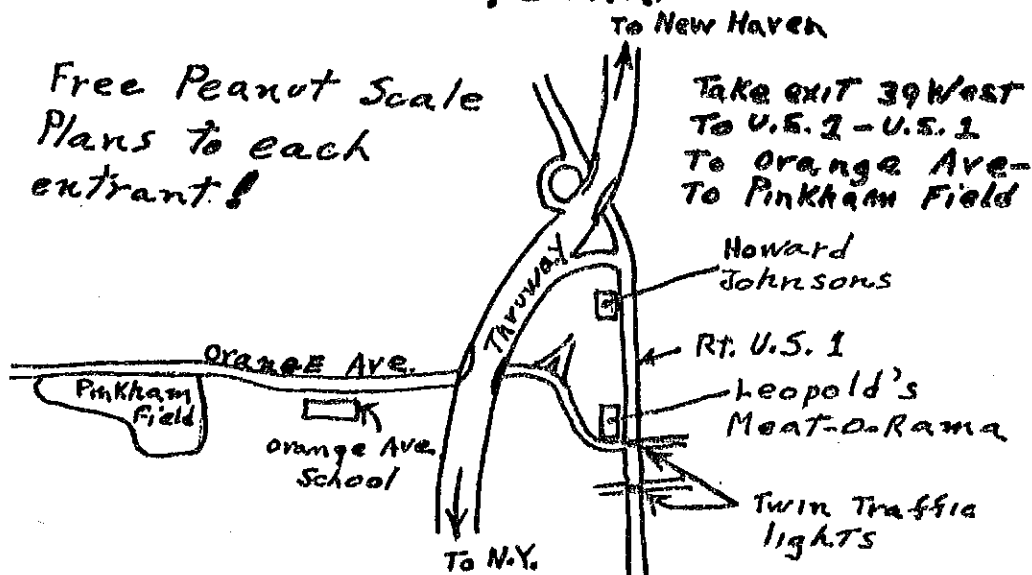 To New Haven
Free Peanut Scale
Plans to each
entrant!
Take exit 39 West
To U.S.1 - U.S.1
To Orange Ave-
To Pinkham Field
Howard
Johnsons
Thruway
Rt. U.S. 1
Orange Ave.
Pinkham
Field
Leopold's
Meat-O-Rama
Orange Ave.
School
Twin Traffic
lights
To N.Y.